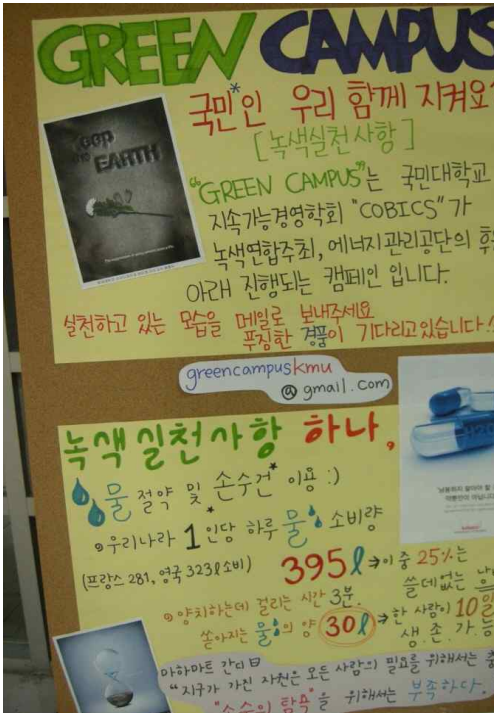 GREEN CAMPUS
국민*인 우리 함께 지켜요
[녹색실천사항]
eep
the EARTH
"GREEN CAMPUS"는 국민대학교
지속가능경영학회 "COBICS"가
녹색연합주최, 에너지관리공단의 후
아래 진행되는 캠페인 입니다.
실천하고 있는 모습을 메일로 보내주세요
푸짐한 경품이 기다리고있습니다!
greencampuskmu
@ gmail.com
녹색실천사항 하나,
물 절약 및 손수건* 이용 :)
우리나라 1*인당 하루 물 소비량
(프랑스 281, 영국 323ℓ소비)
395ℓ → 이 중 25%는
쓸데없는
양치하는데 걸리는 시간 3분.
쏟아지는 물의 양 30ℓ → 한 사람이 10일
생.존.가.능
마하마트 간디曰
"지구가 가진 자원은 모든 사람의 필요를 위해서는 충
"소수의 탐욕"을 위해서는 부족하다.